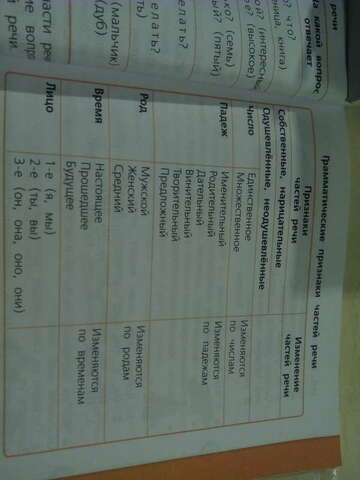 речи
На какой вопрос
отвечает
что?
книга)
(семь)
(пятый)
(мальчик)
(дуб)
Грамматические признаки частей речи
Признаки
частей речи
Изменение
частей речи
Собственные, нарицательные
Одушевлённые, неодушевлённые
Число
Единственное
Множественное
Изменяются
по числам
Падеж
Именительный
Родительный
Дательный
Винительный
Творительный
Предложный
Изменяются
по падежам
Род
Мужской
Женский
Средний
Изменяются
по родам
Время
Настоящее
Прошедшее
Будущее
Изменяются
по временам
Лицо
1-е (я, мы)
2-е (ты, вы)
3-е (он, она, оно, они)